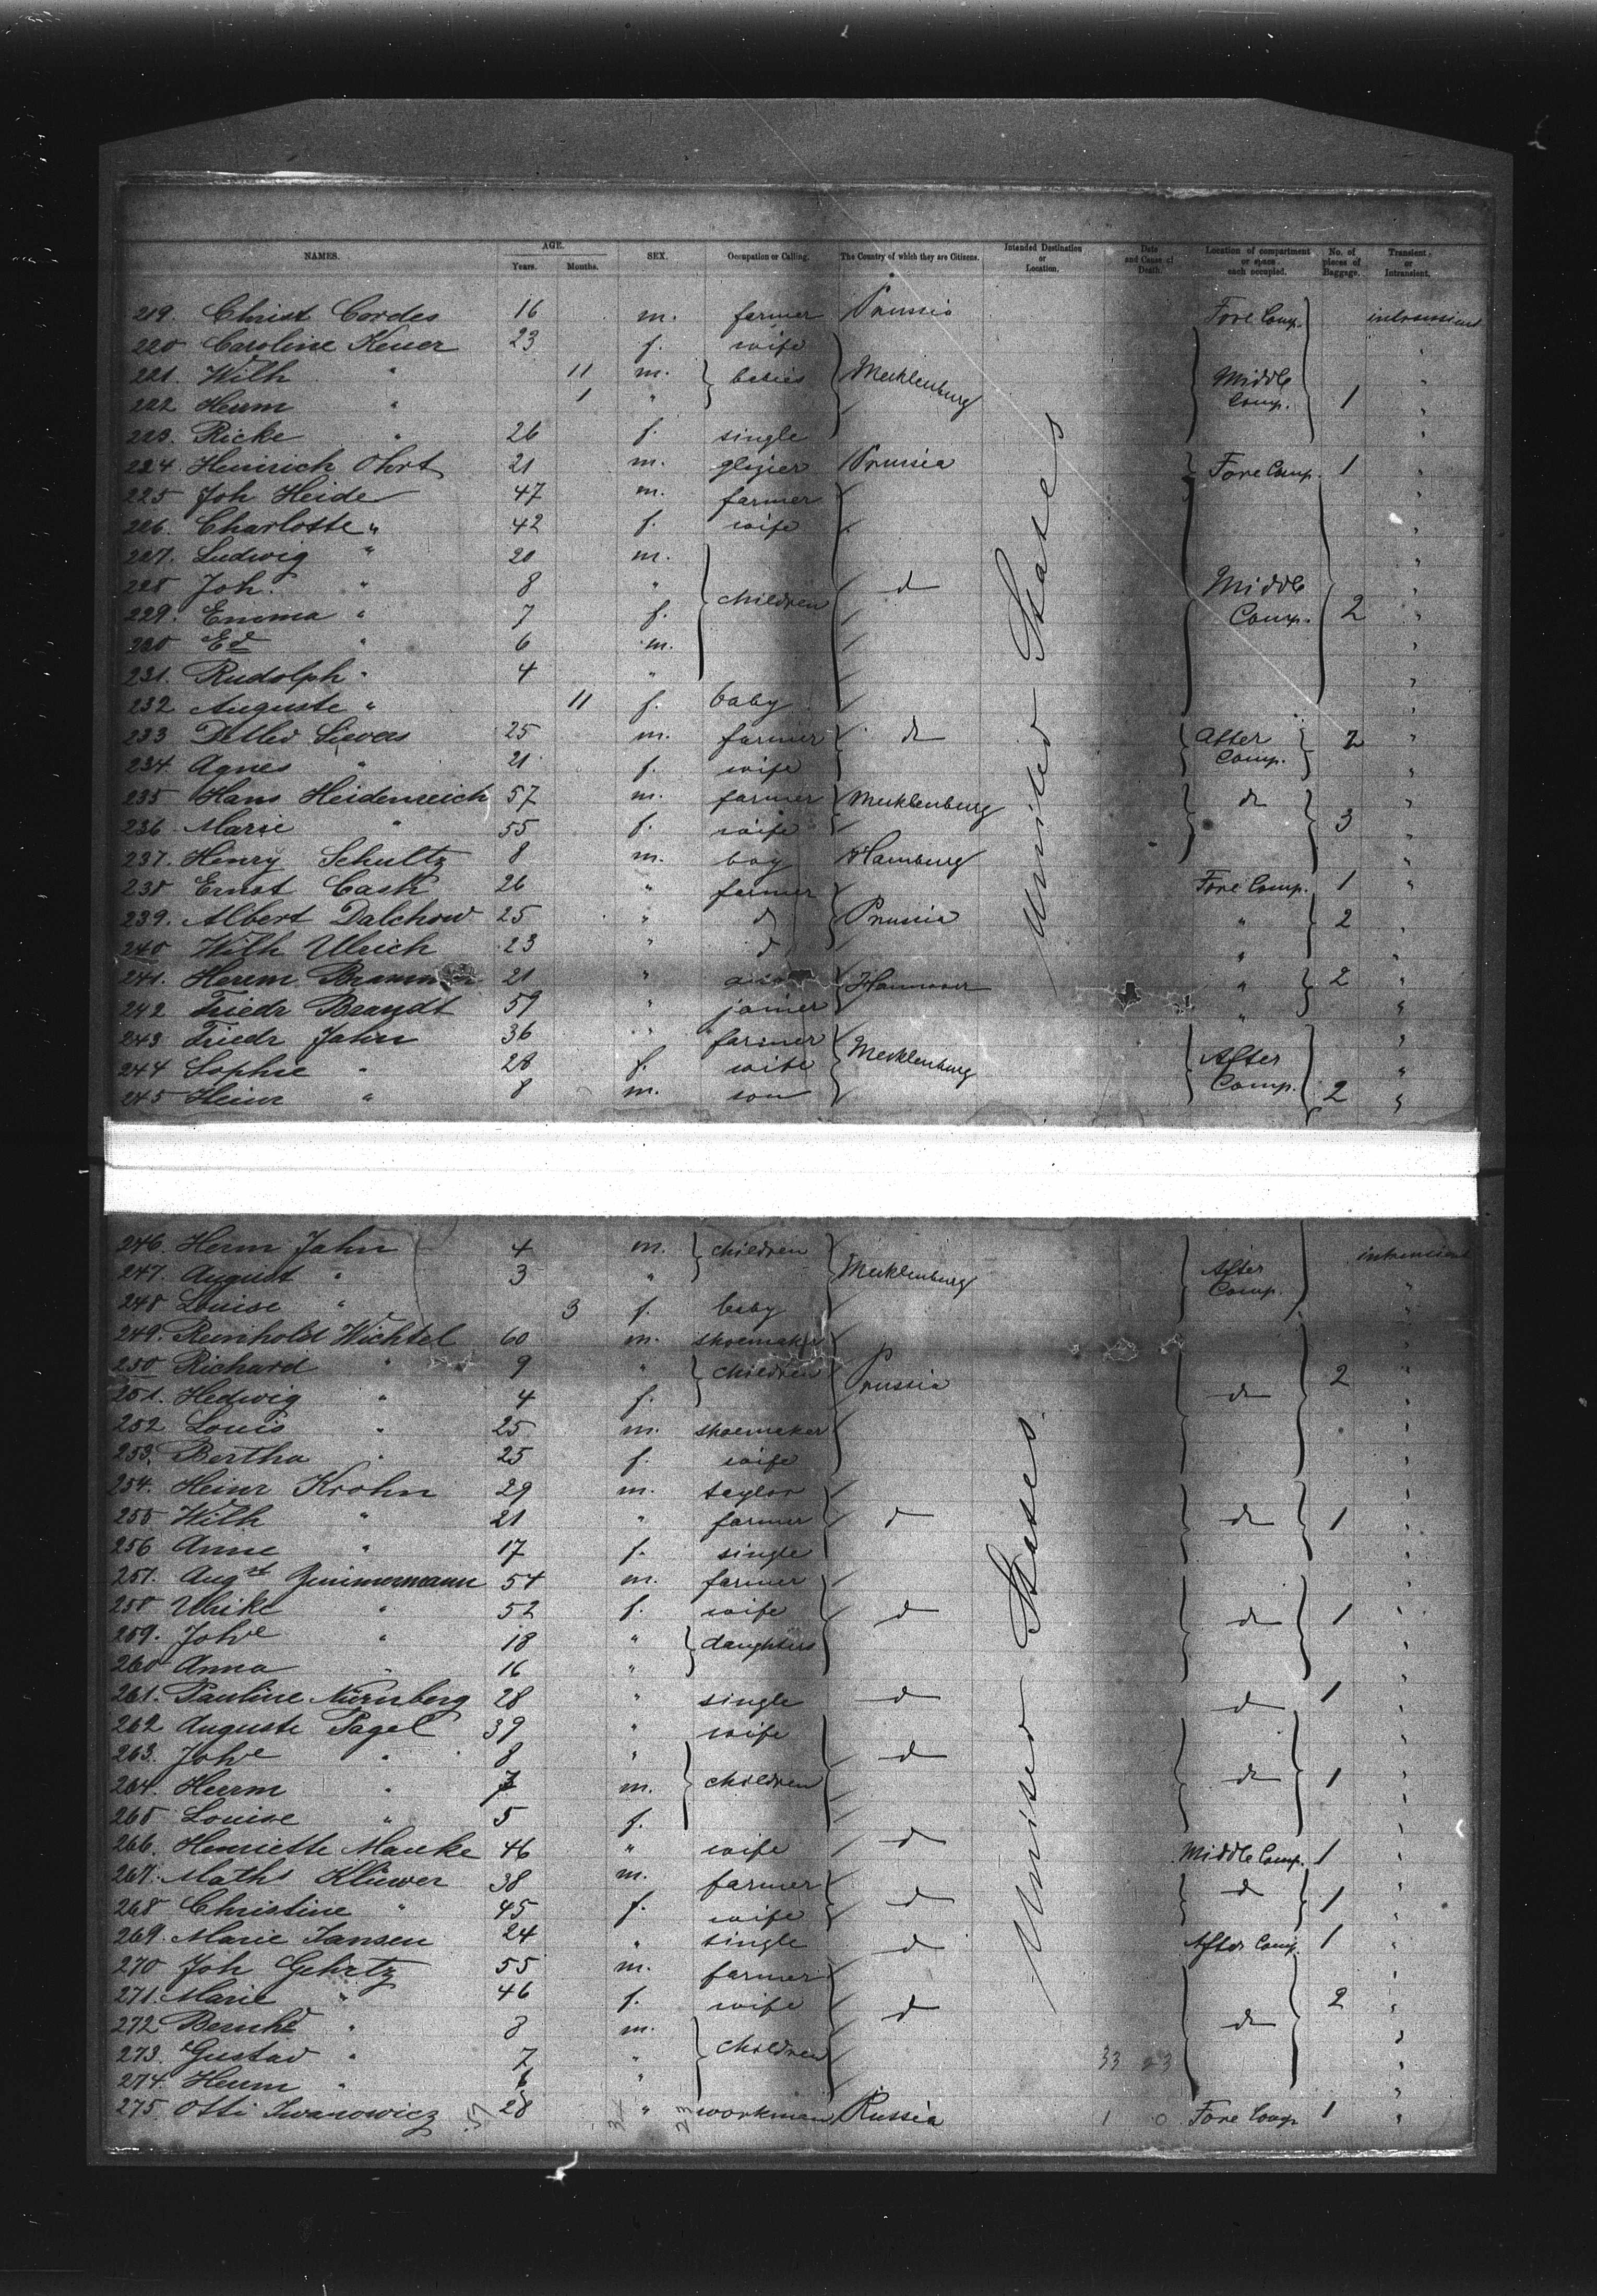 NAMES. AGE. Years. Months. SEX. Occupation or Calling. The Country of which they are Citizens. Intended Destination or Location. Date and Cause of Death. Location of compartment or space each occupied. No. of pieces of Baggage. Transient or Intransient.
219. Christ Cordes 16 m. farmer Prussia Fore Comp. intransient
220 Caroline Keuer 23 f. wife "
221. Wilh " 11 m. babies Mecklenburg Middle Comp. "
222 Herrm " 1 " 1 "
223. Ricke " 26 f. single "
224. Heinrich Ohrt 21 m. glazier Prussia Fore Comp. 1 "
225 Joh Heide 47 m. farmer "
226. Charlotte " 42 f. wife "
227. Ludwig " 20 m. "
228 Joh. " 8 " children do Middle Comp. "
229. Emma " 7 f. 2 "
230 Ed " 6 m. "
231. Rudolph " 4 " "
232 Auguste " 11 f. baby "
233 Detlev Sievers 25 m. farmer do After Comp. 2 "
234. Agnes " 21 f. wife "
235 Hans Heidenreich 57 m. farmer Mecklenburg do "
236 Marie " 55 f. wife 3 "
237. Henry Schultz 8 m. boy Hamburg "
238 Ernst Cash 26 " farmer Fore Comp. 1 "
239. Albert Dalchow 25 " do Prussia " 2 "
240 Wilh Ulrich 23 " do " "
241. Herrm 21 " Hannover " 2 "
242 Friedr Brandt 59 " joiner " "
243 Friedr Jahn 36 " farmer Mecklenburg After Comp. "
244 Sophie " 28 f. wife "
245 Heinr " 8 m. son 2 "
246. Herm Jahn 4 m. children Mecklenburg After Comp. intransient
247. August " 3 " "
248 Louise " 3 f. baby "
249. Reinhold Wichtel 60 m. shoemaker Prussia do "
250 Richard " 9 " children 2 "
251. Hedwig " 4 f. "
252 Louis " 25 m. shoemaker "
253. Bertha " 25 f. wife "
254. Heinr Krohn 29 m. taylor "
255 Wilh " 21 " farmer do do 1 "
256 Anne " 17 f. single "
257. Augst Zimmermann 54 m. farmer "
258 Ulrike " 52 f. wife do do 1 "
259. Johe " 18 " daughters "
260 Anna " 16 " "
261. Pauline Nürnberg 28 " single do do 1 "
262 Auguste Pagel 39 " wife "
263. Johe " 8 " children do "
264. Herrm " 7 m. do 1 "
265 Louise " 5 f. "
266. Henriette Manke 46 " wife do Middle Comp. 1 "
267. Maths Klüwer 38 m. farmer do do 1 "
268 Christine " 45 f. wife "
269. Marie Jansen 24 " single do After Comp. 1 "
270 Joh Gehrtz 55 m. farmer "
271. Marie " 46 f. wife do do 2 "
272 Bernhd " 8 m. children "
273. Gustav " 7 " 33 23 "
274. Herrm " 6 " "
275. Otti Iwanowicz 28 " workman Russia 1 0 Fore Comp 1 "
United States
United States